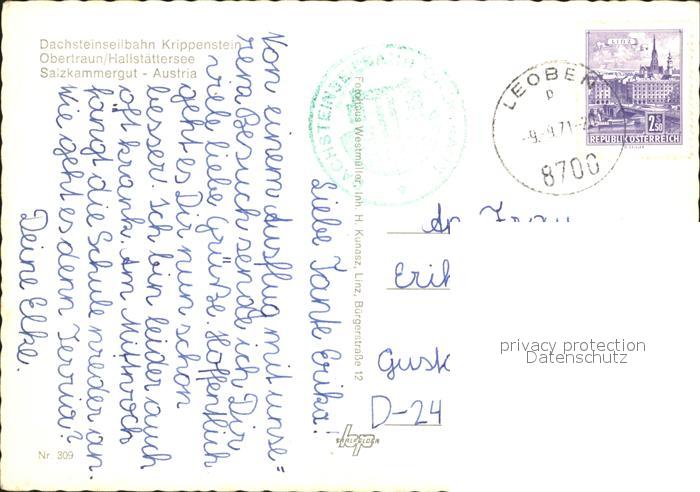 Dachsteinseilbahn Krippenstein
Obertraun/Hallstättersee
Salzkammergut - Austria
Liebe Tante Erika!
Von einem Ausflug mit unse=
rem Besuch sende ich Dir
viele liebe Grüße. Hoffentlich
geht es Dir nun schon
besser. Ich bin leider auch
oft krank. Am Mittwoch
fängt die Schule wieder an.
Wie geht es denn
Deine Elke.
Nr. 309
Fotohaus Westmüller, Inh. H. Kunasz, Linz, Bürgerstraße 12
LINZ
2.50
REPUBLIK ÖSTERREICH
LEOBEN
8700
An Frau
Erik
Gusk
D-24
privacy protection
Datenschutz